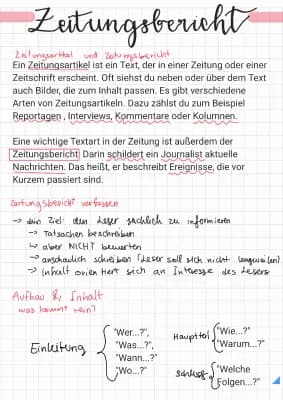 Zeitungsbericht
Zeitungsartikel und Zeitungsbericht
Ein Zeitungsartikel ist ein Text, der in einer Zeitung oder einer
Zeitschrift erscheint. Oft siehst du neben oder über dem Text
auch Bilder, die zum Inhalt passen. Es gibt verschiedene
Arten von Zeitungsartikeln. Dazu zählst du zum Beispiel
Reportagen , Interviews, Kommentare oder Kolumnen.
Eine wichtige Textart in der Zeitung ist außerdem der
Zeitungsbericht. Darin schildert ein Journalist aktuelle
Nachrichten. Das heißt, er beschreibt Ereignisse, die vor
Kurzem passiert sind.
Zeitungsbericht verfassen
→ dein Ziel: den Leser sachlich zu informieren
→ Tatsachen beschreiben
↳ aber NICHT bewerten
→ anschaulich schreiben (Leser soll sich nicht langweilen)
→ Inhalt orientiert sich an Interesse des Lesers
Aufbau & Inhalt
was kommt rein?
Einleitung
"Wer...?",
"Was...?",
"Wann...?"
"Wo...?"
Hauptteil
"Wie...?"
"Warum...?"
Schluss
"Welche
Folgen...?"